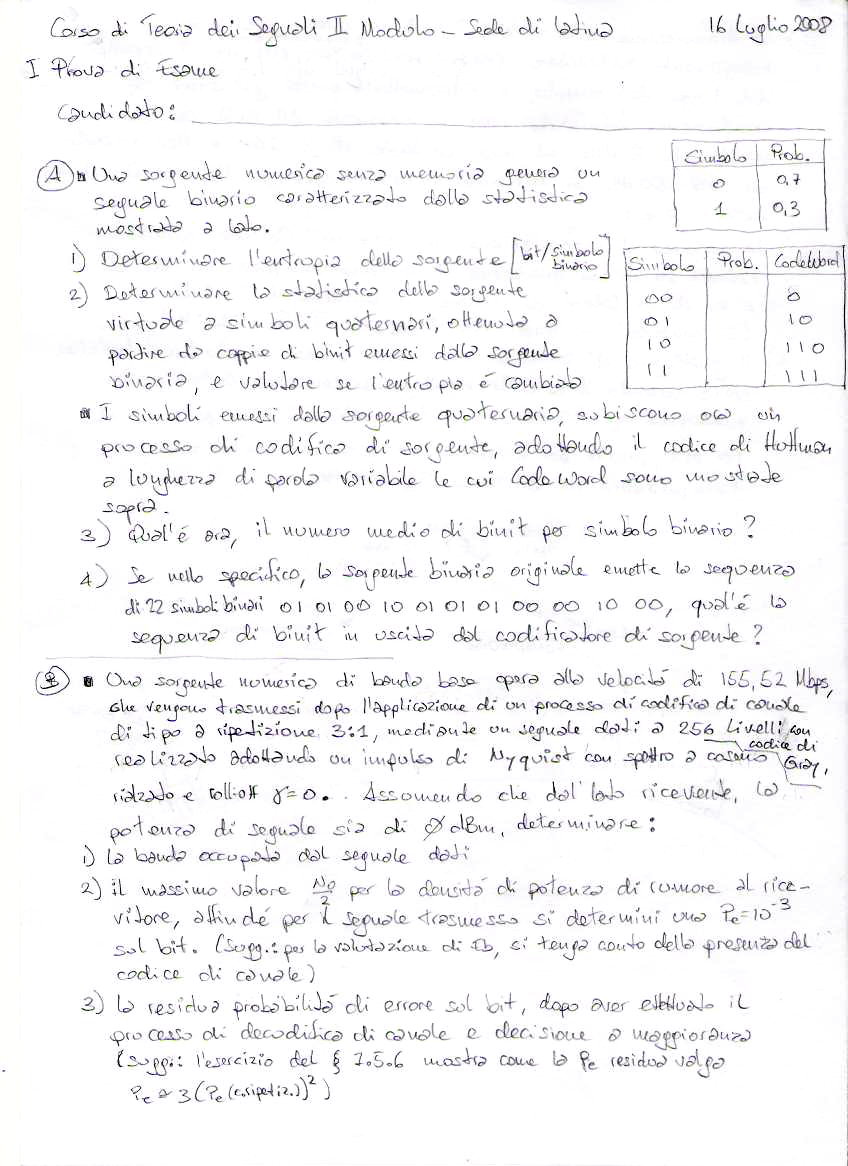 Corso di Teoria dei Segnali II Modulo - Sede di Latina 16 Luglio 2008
I Prova di Esame
Candidato:
A Una sorgente numerica senza memoria genera un
segnale binario caratterizzato dalla statistica
mostrata a lato.
Simbolo Prob.
0 0,7
1 0,3
1) Determinare l'entropia della sorgente [bit/simbolo
binario]
2) Determinare la statistica della sorgente
virtuale a simboli quaternari, ottenuta a
partire da coppie di binit emessi dalla sorgente
binaria, e valutare se l'entropia é cambiata
Simbolo Prob. CodeWord
00 0
01 10
10 110
11 111
I simboli emessi dalla sorgente quaternaria, subiscono ora un
processo di codifica di sorgente, adottando il codice di Huffman
a lunghezza di parola variabile le cui CodeWord sono mostrate
sopra.
3) Qual'é ora, il numero medio di binit per simbolo binario?
4) Se nello specifico, la sorgente binaria originale emette la sequenza
di 22 simboli binari 01 01 00 10 01 01 01 00 00 10 00, qual'é la
sequenza di binit in uscita dal codificatore di sorgente?
B Una sorgente numerica di banda base opera alla velocitá di 155,52 Mbps,
che vengono trasmessi dopo l'applicazione di un processo di codifica di canale
di tipo a ripetizione 3:1, mediante un segnale dati a 256 livelli con
codice di
Gray,
realizzato adottando un impulso di Nyquist con spettro a coseno
rialzato e roll-off γ=0. Assumendo che dal lato ricevente, la
potenza di segnale sia di 0 dBm, determinare:
1) la banda occupata dal segnale dati
2) il massimo valore No/2 per la densitá di potenza di rumore al rice-
vitore, affinché per il segnale trasmesso si determini una Pe=10^-3
sul bit. (Sugg.: per la valutazione di Eb, si tenga conto della presenza del
codice di canale)
3) la residua probabilitá di errore sul bit, dopo aver effettuato il
processo di decodifica di canale e decisione a maggioranza
(sugg.: l'esercizio del § 7.5.6 mostra come la Pe residua valga
Pe ≃ 3(Pe(c.ripetiz.))^2)